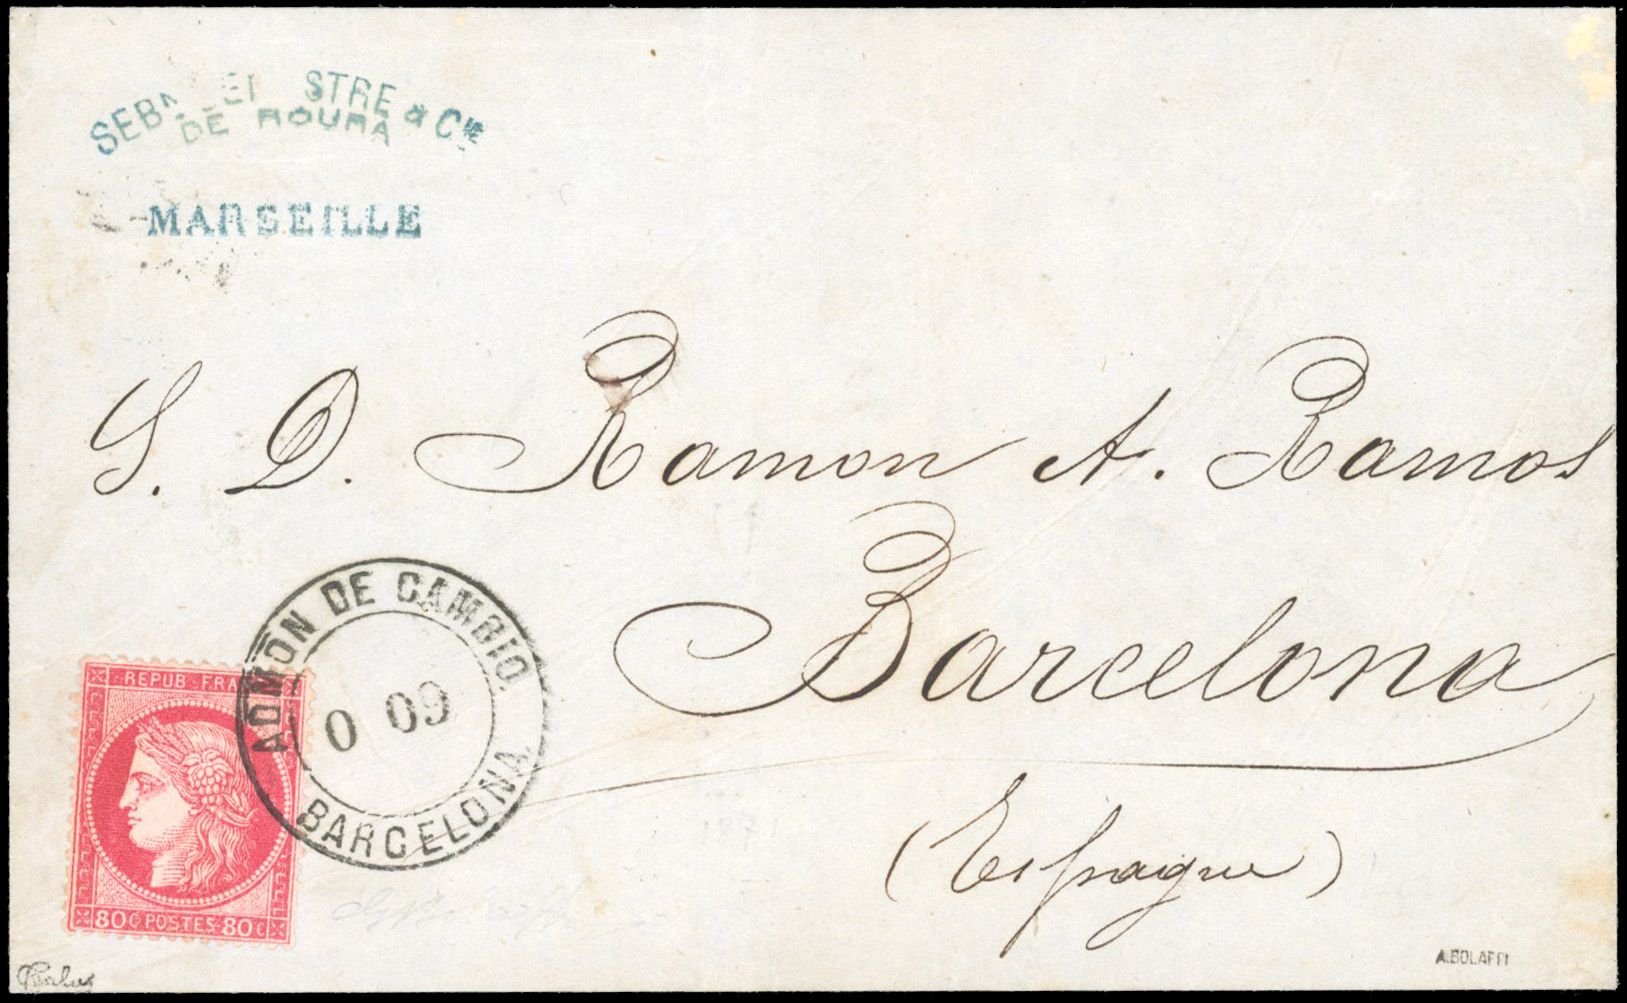 DE ROURA
STRE & Cie
MARSEILLE
S. D. Ramon A. Ramos
Barcelona
(Espagne)
ADMON DE CAMBIO.
0 09
BARCELONA.
REPUB. FRA
80 C POSTES 80 C
A. BOLAFFI